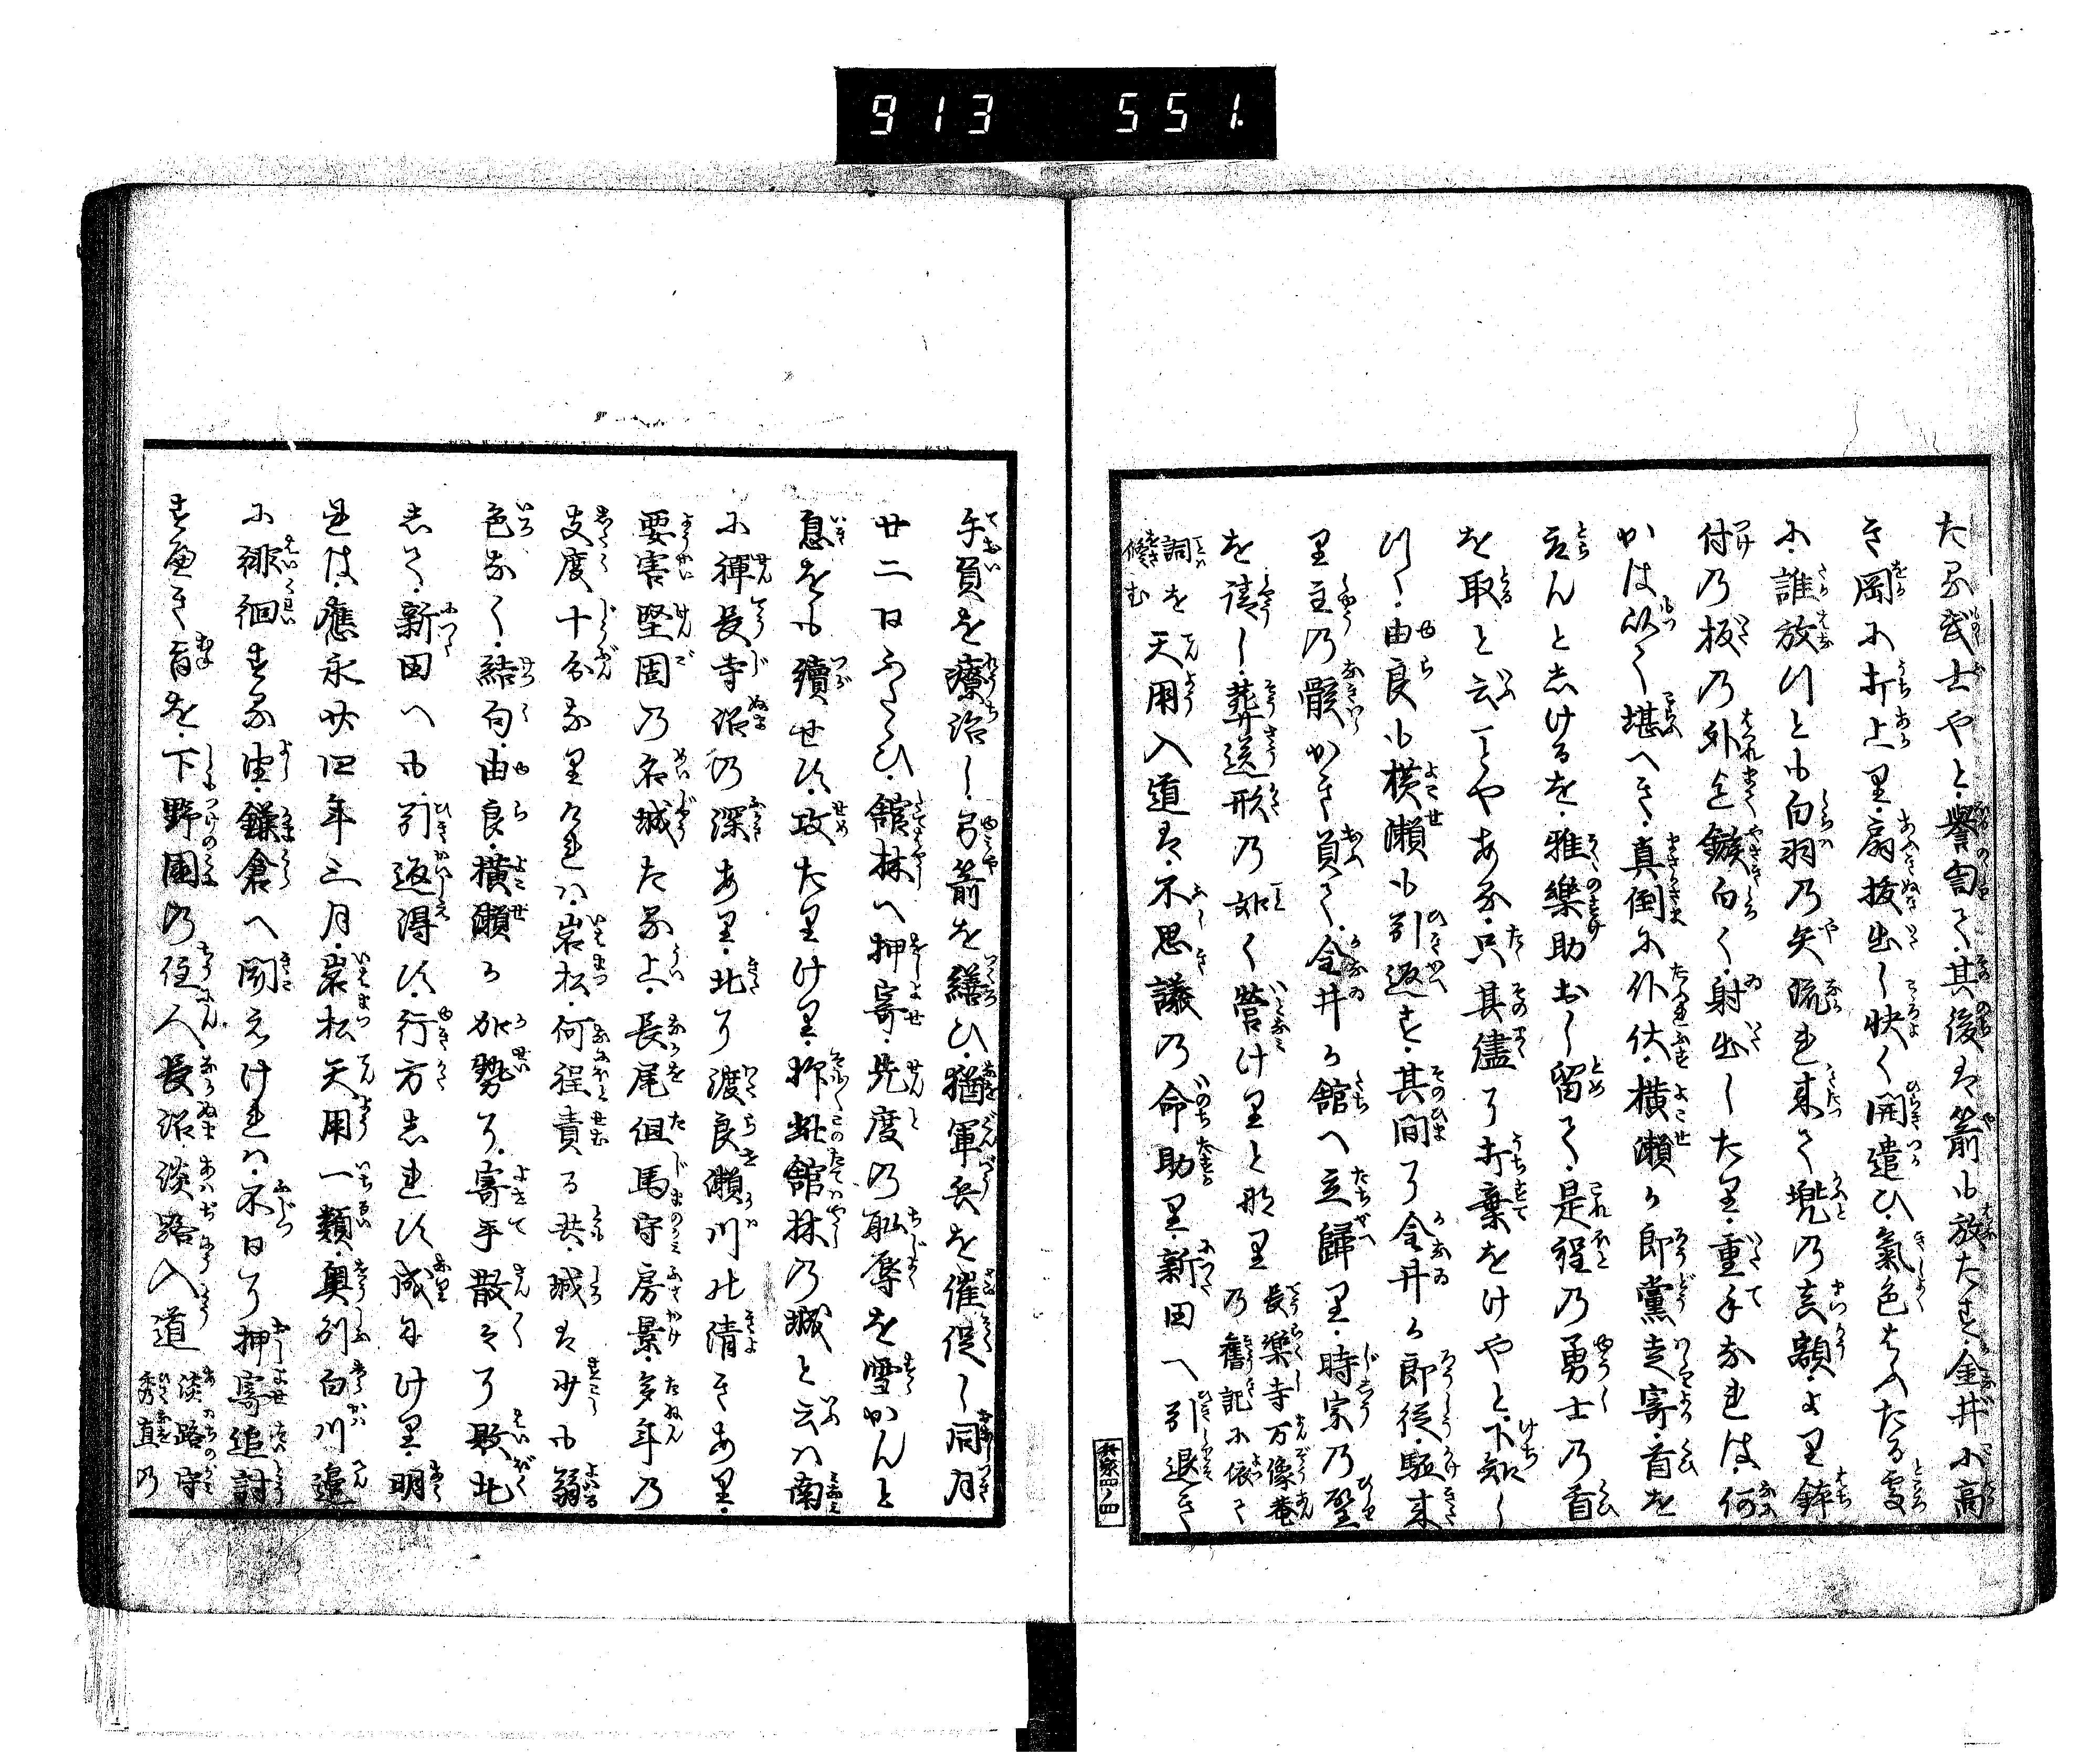 913 551.
たる武士やと。誉匂て。其後は箭も放たず。金井小高
き岡に打上里。扇抜出し快く開遣ひ。氣色はふたる処
に。誰放つとも白羽乃矢流れ来て兜の真額より鉢
付乃板乃外迄鏃白く。射出したり。重手なれば。何
かは以て堪へき。真倒に仆伏。横瀬が郎黨走寄。首を
取んとしけるを。雅樂助おし留て。是程乃勇士乃首
を取と云ことやある。只其儘に打棄をけやと。下知し
つゝ。由良も横瀬も引返す。其間に金井が郎従。駈来
里主乃骸かき負て。金井が舘へ立歸里。時宗乃聖
を請し。葬送形乃如く營けりと那里 長楽寺万像菴乃舊記に依て
詞を修む 天用入道は。不思議乃命助里。新田へ引退き
秋家四ノ四
手負を療治し。弓箭を繕ひ。猶軍兵を催促し同月
廿二日ふたゝひ。舘林へ押寄。先度の恥辱を雪かんと
息をも續せず。攻たりけり。抑此舘林の城と云は南
に禪長寺沼の深あり。北に渡良瀬川の清きあり。
要害堅固の名城たる上。長尾但馬守房景。多年の
支度十分なりければ。岩松。何程責る共。城は少も弱
色なく。結句。由良。横瀬が加勢に。寄手散々に敗北
して。新田へも。引返得ず。行方しれず成にけり。明
れば。應永廿四年三月。岩松天用一類。奥州白川邊
に徘徊する由。鎌倉へ聞えければ。不日に押寄追討
すべき旨を。下野國の住人。長沼。淡路入道 淡路守秀直の